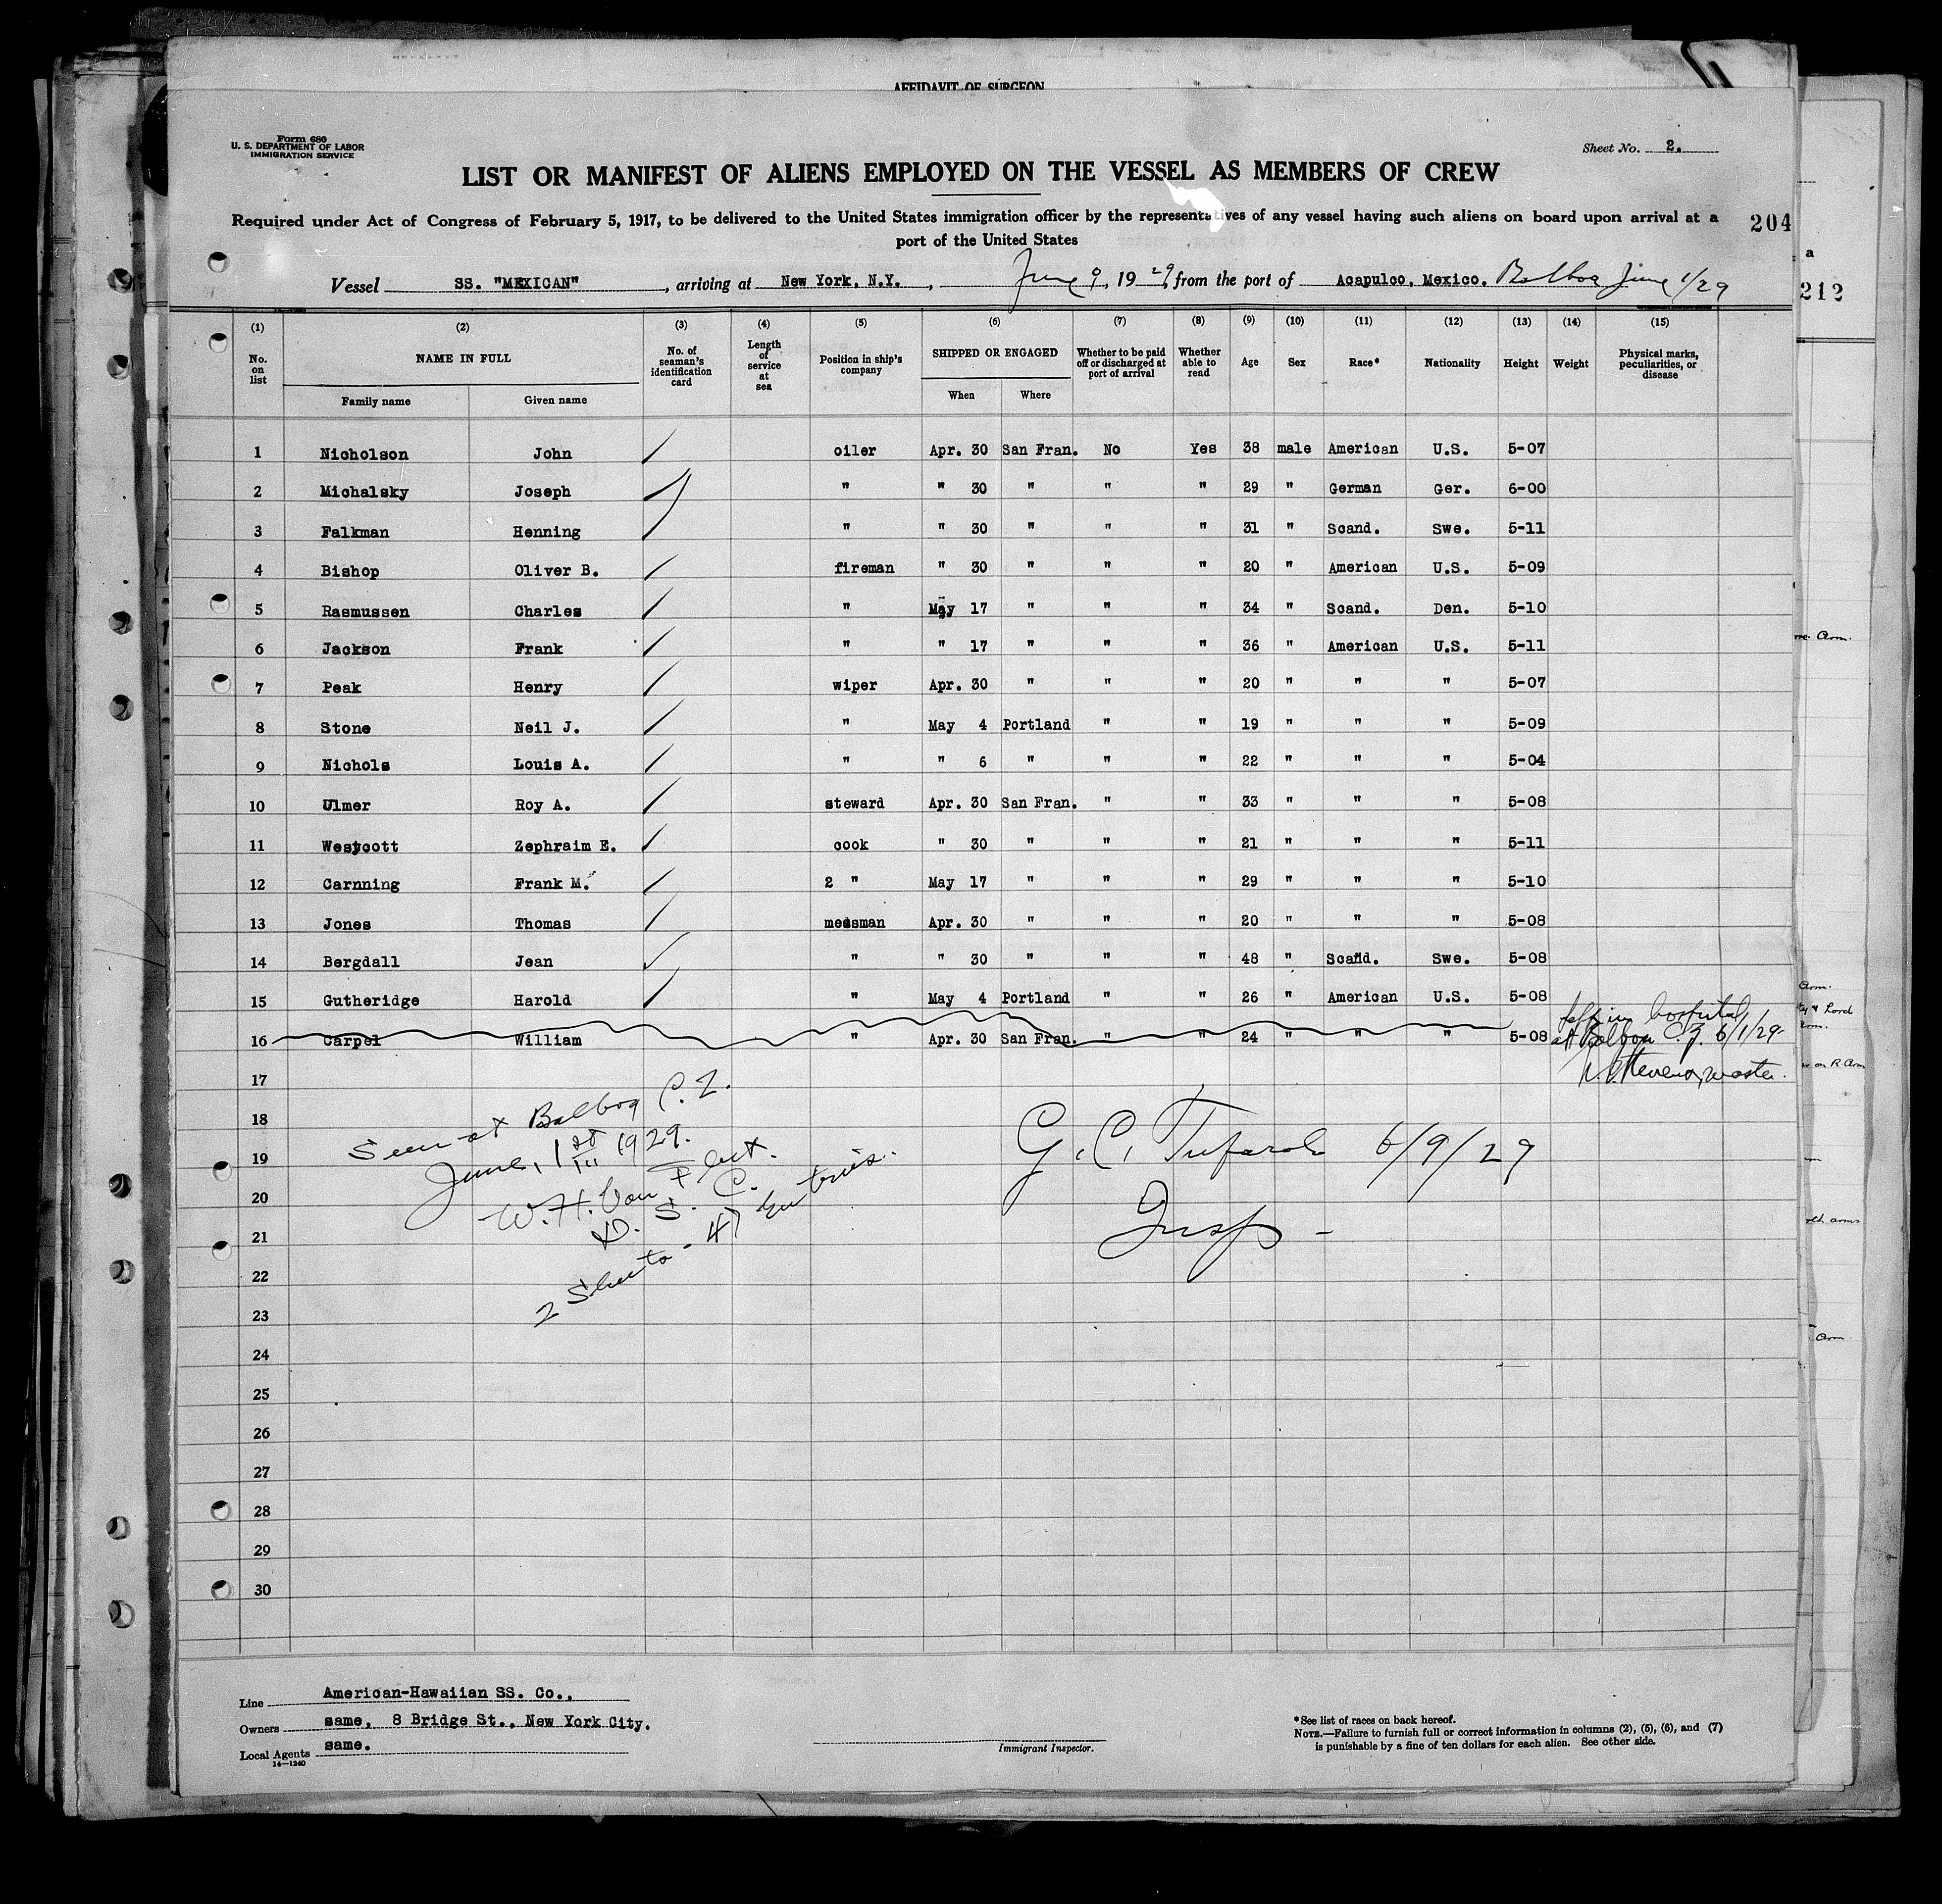 AFFIDAVIT OF SURGEON
Form 680
U. S. DEPARTMENT OF LABOR
IMMIGRATION SERVICE
Sheet No. 2.
LIST OR MANIFEST OF ALIENS EMPLOYED ON THE VESSEL AS MEMBERS OF CREW
Required under Act of Congress of February 5, 1917, to be delivered to the United States immigration officer by the representatives of any vessel having such aliens on board upon arrival at a
port of the United States
204
212
Vessel SS. "MEXICAN", arriving at New York, N.Y., June 9, 1929, from the port of Acapulco, Mexico. Balboa June 1/29
(1) (2) (3) (4) (5) (6) (7) (8) (9) (10) (11) (12) (13) (14) (15)
No. on list NAME IN FULL Family name Given name No. of seaman's identification card Length of service at sea Position in ship's company SHIPPED OR ENGAGED When Where Whether to be paid off or discharged at port of arrival Whether able to read Age Sex Race* Nationality Height Weight Physical marks, peculiarities, or disease
1 Nicholson John oiler Apr. 30 San Fran. No Yes 38 male American U.S. 5-07
2 Michalsky Joseph " " 30 " " " 29 " German Ger. 6-00
3 Falkman Henning " " 30 " " " 31 " Scand. Swe. 5-11
4 Bishop Oliver B. fireman " 30 " " " 20 " American U.S. 5-09
5 Rasmussen Charles " May 17 " " " 34 " Scand. Den. 5-10
6 Jackson Frank " " 17 " " " 36 " American U.S. 5-11
7 Peak Henry wiper Apr. 30 " " " 20 " " " 5-07
8 Stone Neil J. " May 4 Portland " " 19 " " " 5-09
9 Nichols Louis A. " " 6 " " " 22 " " " 5-04
10 Ulmer Roy A. steward Apr. 30 San Fran. " " 33 " " " 5-08
11 Westcott Zephraim E. cook " 30 " " " 21 " " " 5-11
12 Carnning Frank M. 2 " May 17 " " " 29 " " " 5-10
13 Jones Thomas messman Apr. 30 " " " 20 " " " 5-08
14 Bergdall Jean " " 30 " " " 48 " Scand. Swe. 5-08
15 Gutheridge Harold " May 4 Portland " " 26 " American U.S. 5-08
16 Carpel William " Apr. 30 San Fran. " " 24 " " " 5-08
Left in hospital
at Balboa C.Z. 6/1/29
Stevens, master.
17
18
19
20
21
22
23
24
25
26
27
28
29
30
Seen at Balboa C.Z.
June, 1st 1929.
W. H. Van Fleet.
D. S. C.
2 Sheets - 47 Entries.
G. C. 6/9/29
Insp -
Line American-Hawaiian SS. Co.,
Owners same, 8 Bridge St., New York City.
Local Agents same.
14—1240
Immigrant Inspector.
*See list of races on back hereof.
NOTE.—Failure to furnish full or correct information in columns (2), (5), (6), and (7)
is punishable by a fine of ten dollars for each alien. See other side.